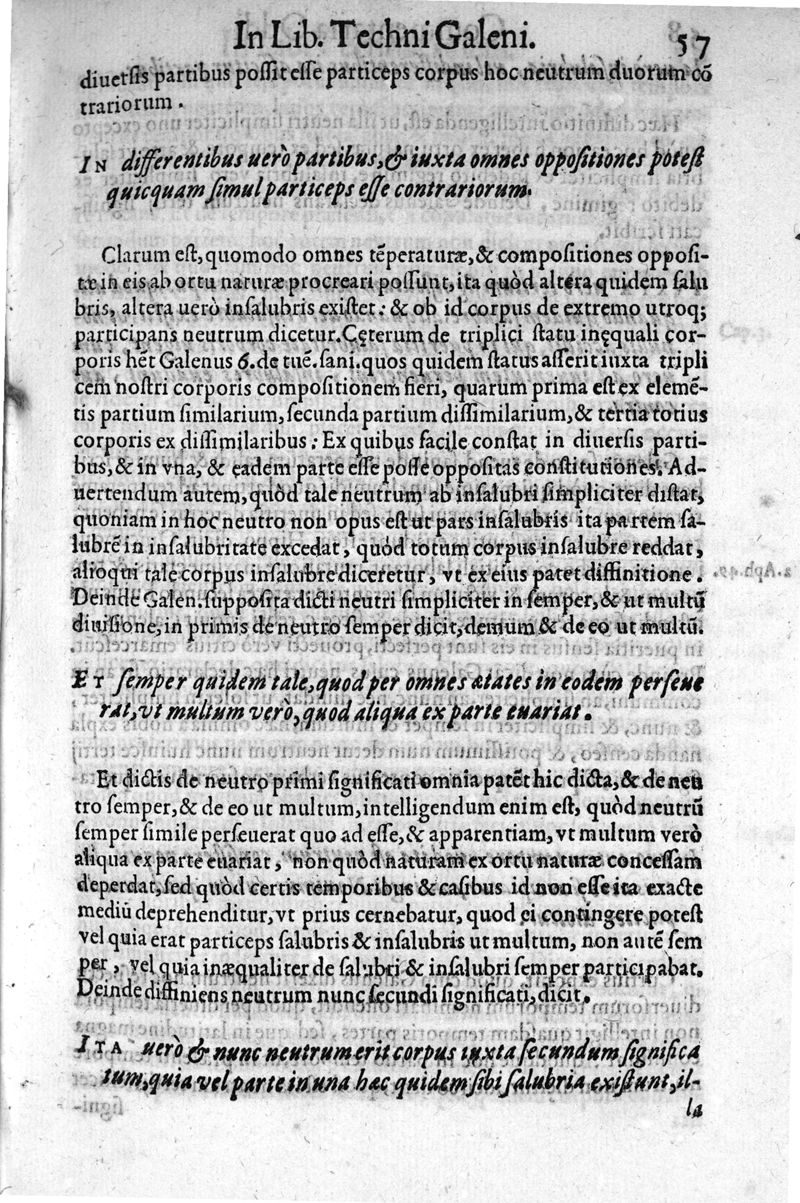 In Lib. Techni Galeni. 57
diuersis partibus possit esse particeps corpus hoc neutrum duorum cō
trariorum.
IN differentibus uerò partibus, & iuxta omnes oppositiones potest
quicquam simul particeps esse contrariorum.
Clarum est, quomodo omnes tēperaturæ, & compositiones opposi-
tæ in eis ab ortu naturæ procreari possunt, ita quòd altera quidem salu
bris, altera uerò insalubris existet: & ob id corpus de extremo utroq;
participans neutrum dicetur. Cęterum de triplici statu inęquali cor-
poris hēt Galenus 6. de tuē. sani. quos quidem status asserit iuxta tripli
cem nostri corporis compositionem fieri, quarum prima est ex elemē-
tis partium similarium, secunda partium dissimilarium, & tertia totius
corporis ex dissimilaribus: Ex quibus facile constat in diuersis parti-
bus, & in vna, & eadem parte esse posse oppositas constitutiones. Ad-
uertendum autem, quòd tale neutrum ab insalubri simpliciter distat,
quoniam in hoc neutro non opus est ut pars insalubris ita partem sa-
lubrē in insalubritate excedat, quòd totum corpus insalubre reddat,
alioqui tale corpus insalubre diceretur, vt ex eius patet diffinitione.
Deinde Galen. supposita dicti neutri simpliciter in semper, & ut multū
diuisione, in primis de neutro semper dicit, demum & de eo ut multū.
ET semper quidem tale, quod per omnes ætates in eodem perseue
rat, vt multum verò, quod aliqua ex parte euariat.
Et dictis de neutro primi significati omnia patēt hic dicta, & de neu
tro semper, & de eo ut multum, intelligendum enim est, quòd neutrū
semper simile perseuerat quo ad esse, & apparentiam, vt multum verò
aliqua ex parte euariat, non quòd naturam ex ortu naturæ concessam
deperdat, sed quòd certis temporibus & casibus id non esse ita exacte
mediū deprehenditur, vt prius cernebatur, quod ei contingere potest
vel quia erat particeps salubris & insalubris ut multum, non autē sem
per, vel quia inæqualiter de salubri & insalubri semper participabat.
Deinde diffiniens neutrum nunc secundi significati, dicit.
ITA uerò & nunc neutrum erit corpus iuxta secundum significa
tum, quia vel parte in una hac quidem sibi salubria existunt, il-
la